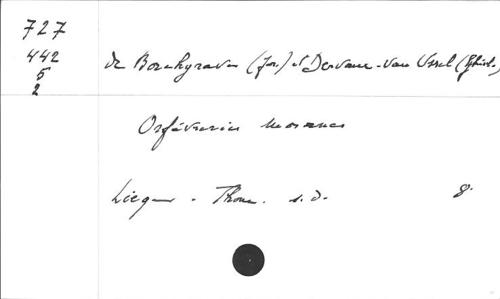 727
442
5
2
de Borchgrave (Jos.) et Dervaux-Van Ussel (Ghisl.)
Orfèvreries mosanes
Liège - Thone. s.d. 8°